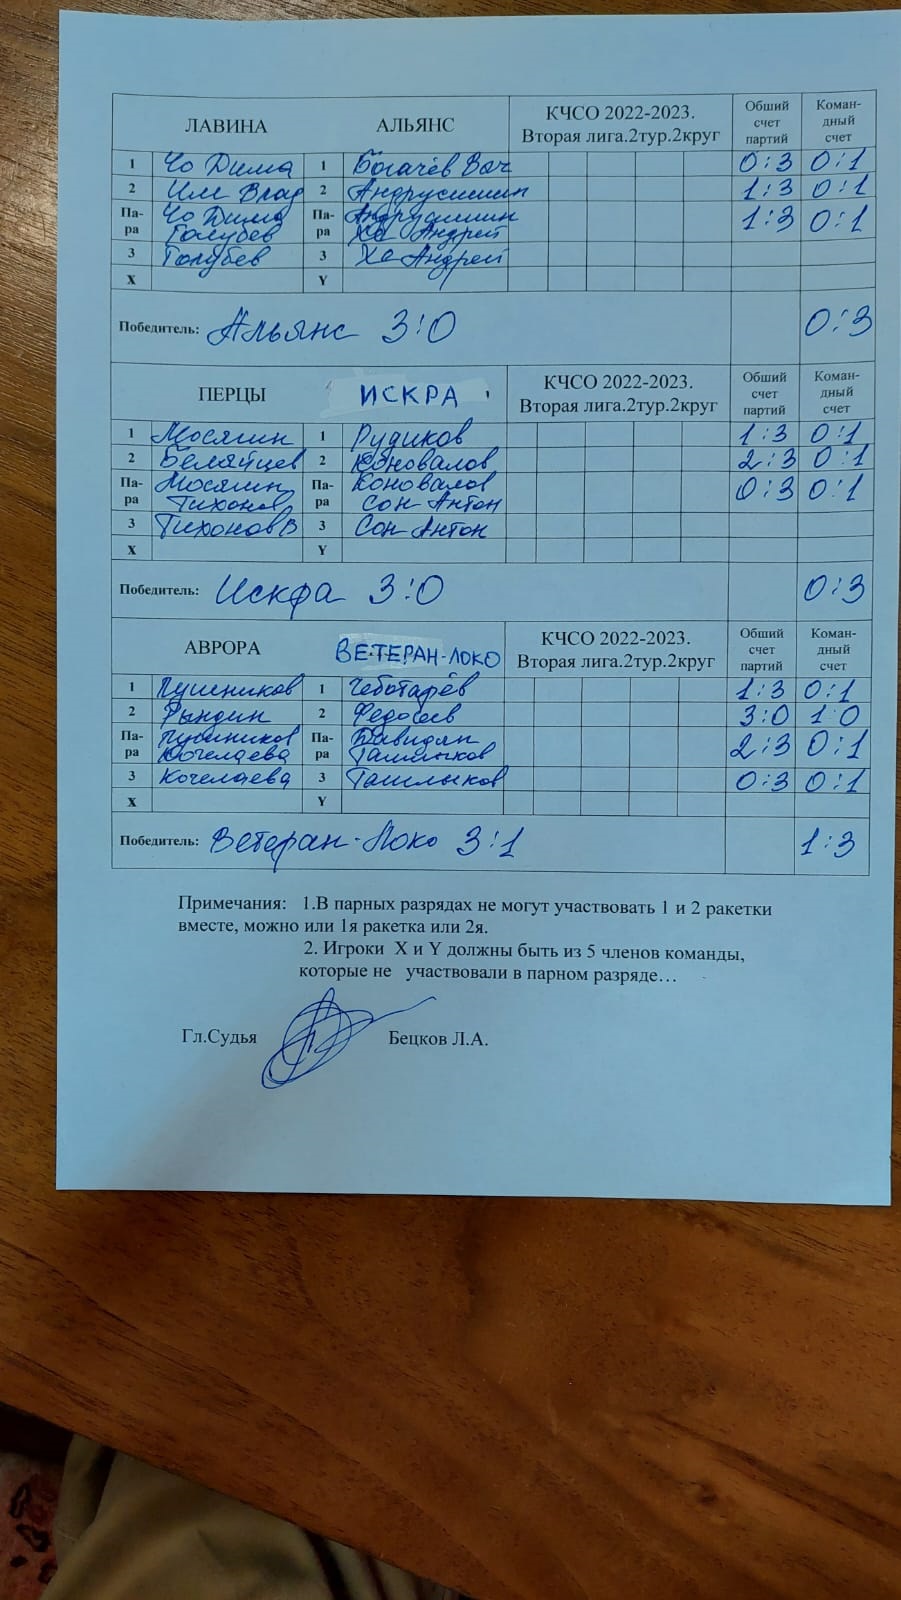 ЛАВИНА АЛЬЯНС КЧСО 2022-2023. Вторая лига.2тур.2круг Общий счет партий Коман-дный счет
1 Чо Дима 1 Богачёв Вяч 0:3 0:1
2 Им Влад 2 Андрусишин 1:3 0:1
Па-ра Чо Дима Голубев Па-ра Андрусишин Хе Андрей 1:3 0:1
3 Голубев 3 Хе Андрей
X Y
Победитель: Альянс 3:0 0:3
ПЕРЦЫ ИСКРА КЧСО 2022-2023. Вторая лига.2тур.2круг Общий счет партий Коман-дный счет
1 Мосягин 1 Рудиков 1:3 0:1
2 Беляйцев 2 Коновалов 2:3 0:1
Па-ра Мосягин Тихонов Па-ра Коновалов Сон Антон 0:3 0:1
3 Тихонов В 3 Сон Антон
X Y
Победитель: Искра 3:0 0:3
АВРОРА ВЕТЕРАН-ЛОКО КЧСО 2022-2023. Вторая лига.2тур.2круг Общий счет партий Коман-дный счет
1 Пушников 1 Чеботарёв 1:3 0:1
2 Рындин 2 3:0 1:0
Па-ра Пушников Кочелаева Па-ра Давидян Ташлыков 2:3 0:1
3 Кочелаева 3 Ташлыков 0:3 0:1
X Y
Победитель: Ветеран-Локо 3:1 1:3
Примечания: 1.В парных разрядах не могут участвовать 1 и 2 ракетки
вместе, можно или 1я ракетка или 2я.
2. Игроки X и Y должны быть из 5 членов команды,
которые не участвовали в парном разряде…
Гл.Судья Бецков Л.А.